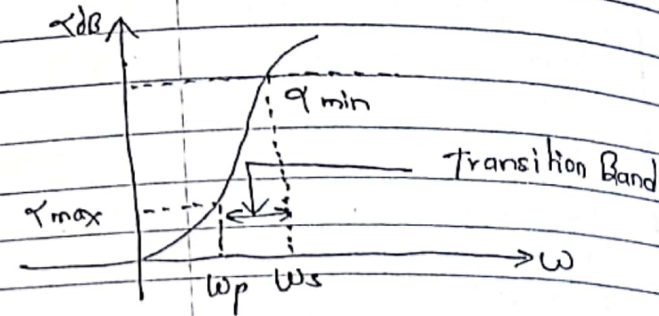 αdB
αmin
Transition Band
αmax
ω
ωp ωs